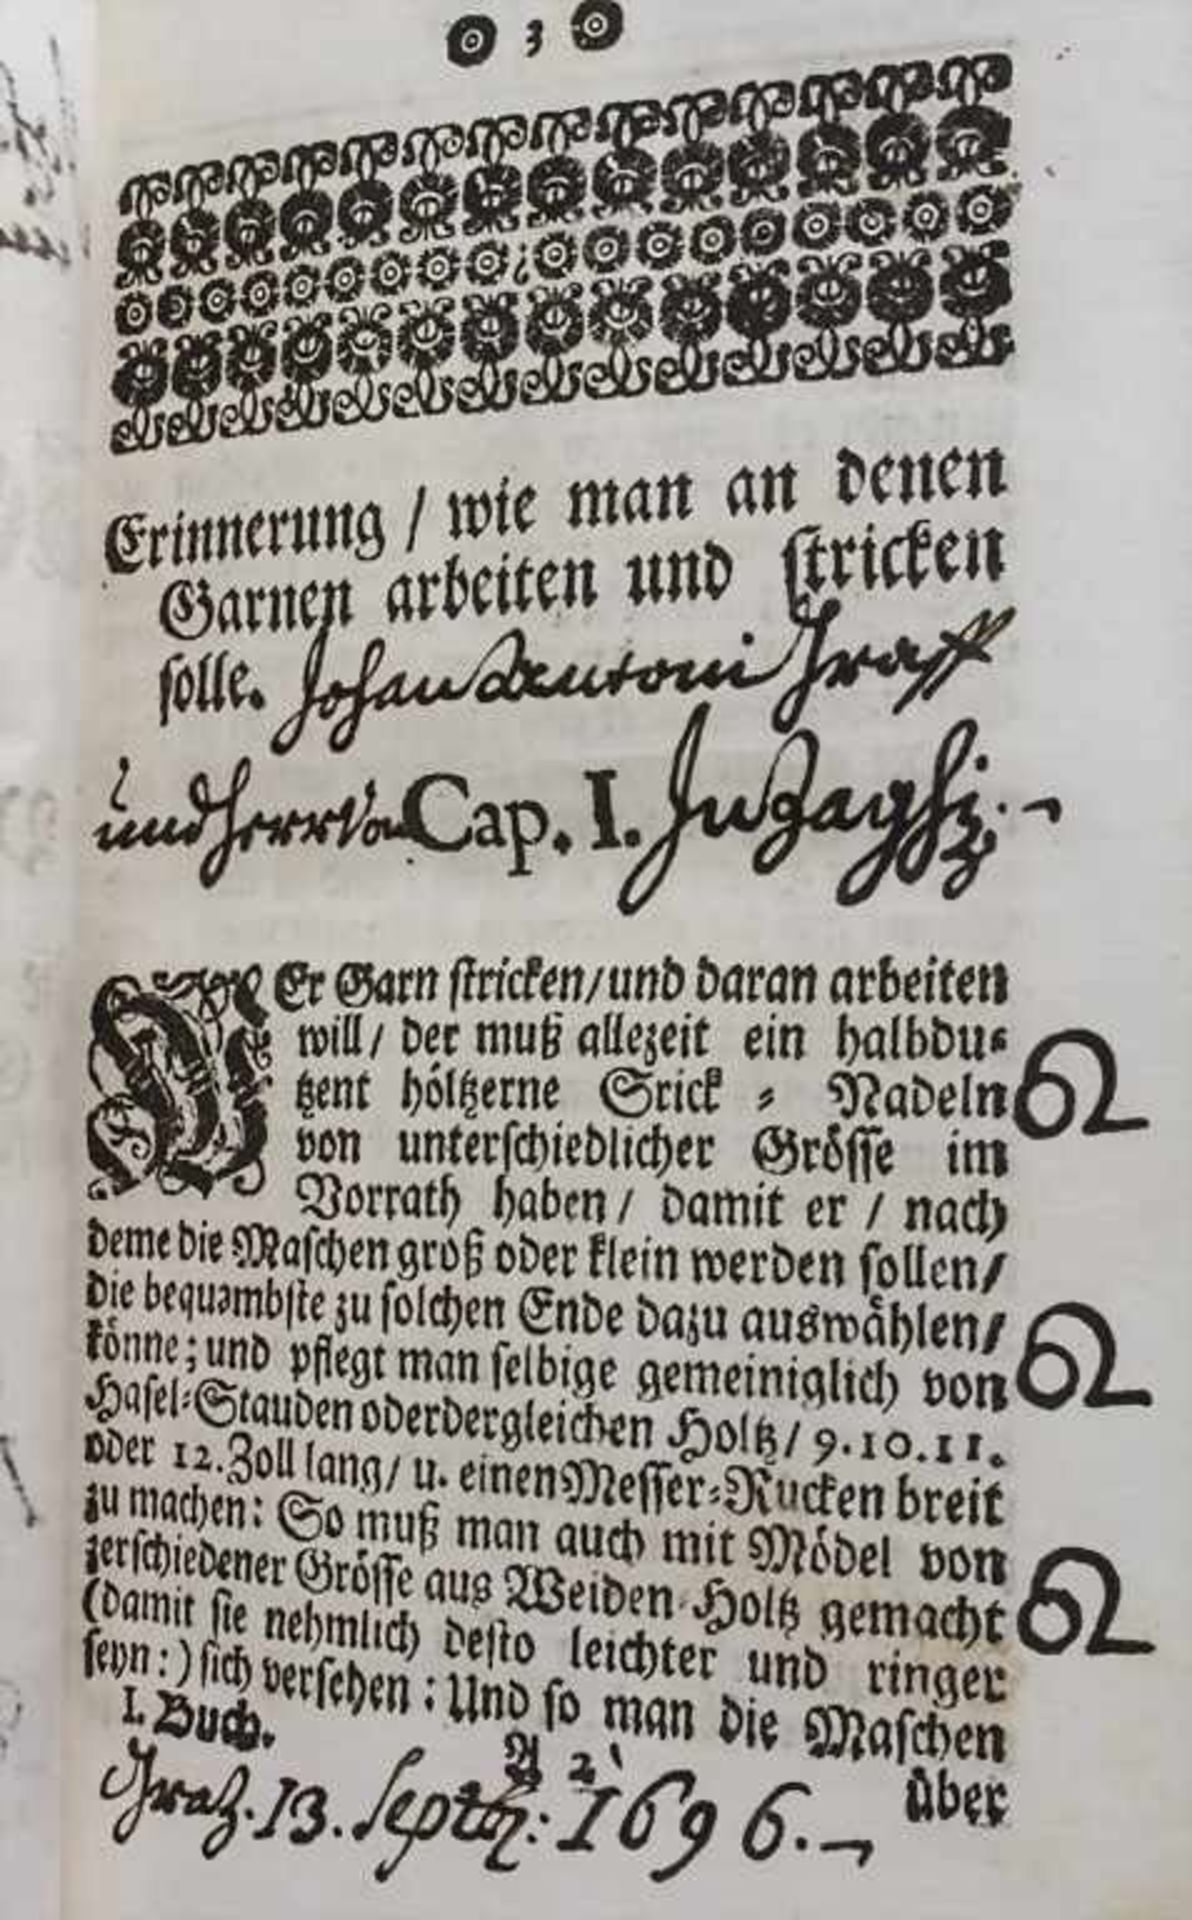 3
Erinnerung / wie man an denen
Garnen arbeiten und stricken
solle. Johan Antoni Graff
und Herr Von Cap. I. Inzaghi.
WEr Garn stricken/und daran arbeiten
will/ der muß allezeit ein halbdu-
tzent höltzerne Srick - Nadeln
von unterschiedlicher Grösse im
Vorrath haben/ damit er / nach
deme die Maschen groß oder klein werden sollen/
die bequambste zu solchen Ende dazu auswählen/
könne; und pflegt man selbige gemeiniglich von
Hasel-Stauden oder dergleichen Holtz/ 9.10.11.
oder 12. Zoll lang/ u. einen Messer-Rucken breit
zu machen: So muß man auch mit Mödel von
zerschiedener Grösse aus Weiden-Holtz gemacht
(damit sie nehmlich desto leichter und ringer
seyn:) sich versehen: Und so man die Maschen
I. Buch. A 2 über
Graz. 13. Septb: 1696.